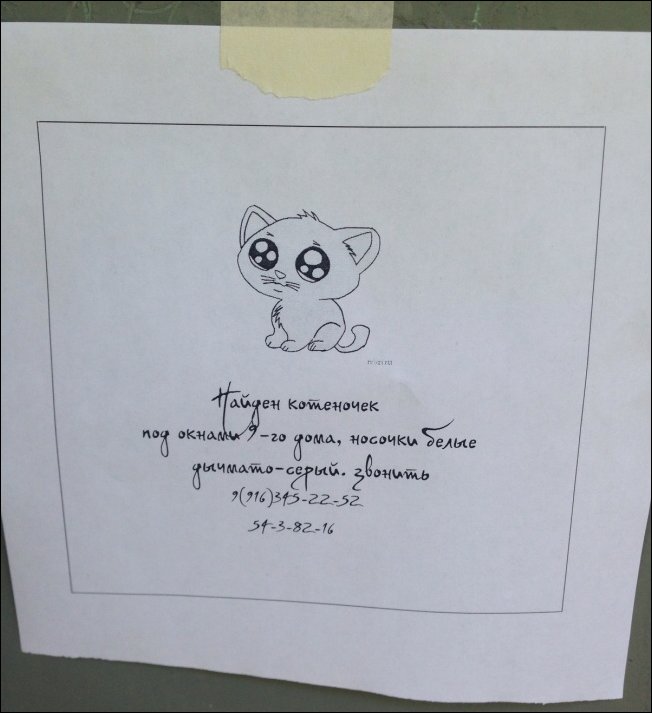 Найден котеночек
под окнами 9-го дома, носочки белые
дычмато-серый. звонить
9(916)345-22-52
54-3-82-16